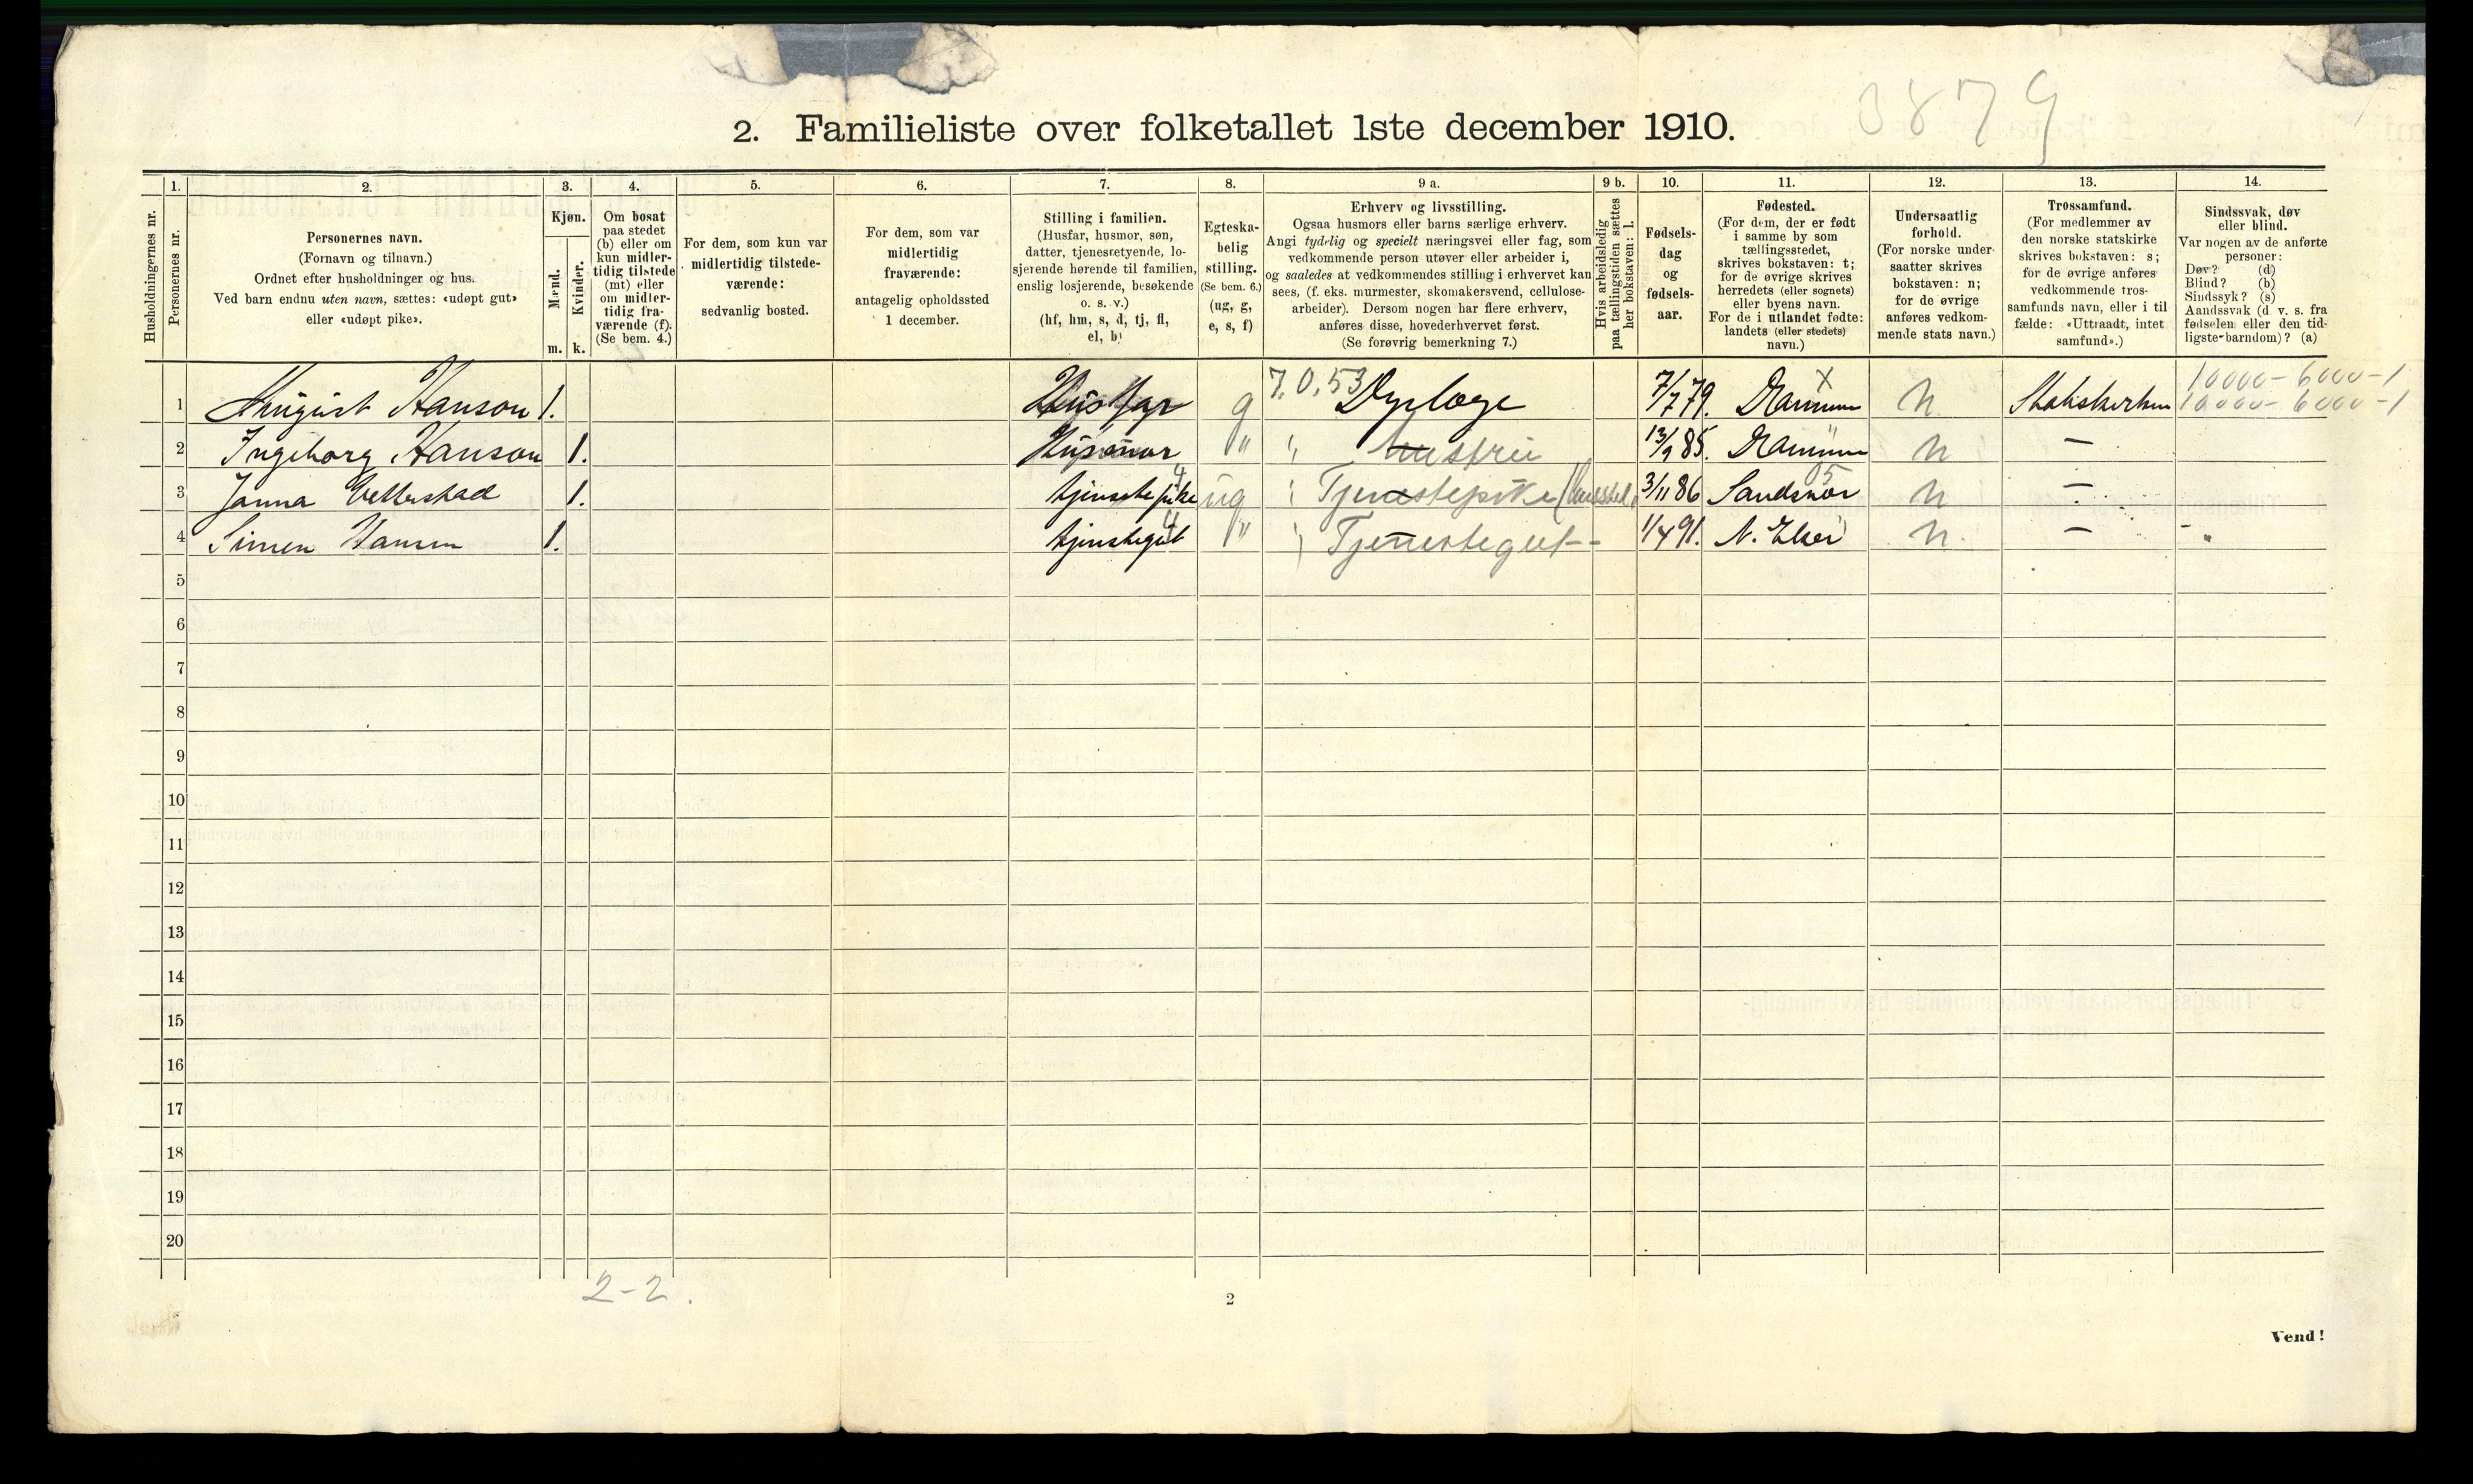 3879
2. Familieliste over folketallet 1ste december 1910.
Husholdningernes nr.
1.
Personernes nr.
2.
Personernes navn.
(Fornavn og tilnavn.)
Ordnet efter husholdninger og hus.
Ved barn endnu uten navn, sættes: «udøpt gut»
eller «udøpt pike».
3.
Kjøn.
Mænd.
Kvinder.
m. k.
4.
Om bosat
paa stedet
(b) eller om
kun midler-
tidig tilstede
(mt) eller
om midler-
tidig fra-
værende (f).
(Se bem. 4.)
5.
For dem, som kun var
midlertidig tilstede-
værende:
sedvanlig bosted.
6.
For dem, som var
midlertidig
fraværende:
antagelig opholdssted
1 december.
7.
Stilling i familien.
(Husfar, husmor, søn,
datter, tjenestetyende, lo-
sjerende hørende til familien,
enslig losjerende, besøkende
o. s. v.)
(hf, hm, s, d, tj, fl,
el, b)
8.
Egteska-
belig
stilling.
(Se bem. 6.)
(ug, g,
e, s, f)
9 a.
Erhverv og livsstilling.
Ogsaa husmors eller barns særlige erhverv.
Angi tydelig og specielt næringsvei eller fag, som
vedkommende person utøver eller arbeider i,
og saaledes at vedkommendes stilling i erhvervet kan
sees, (f. eks. murmester, skomakersvend, cellulose-
arbeider). Dersom nogen har flere erhverv,
anføres disse, hovederhvervet først.
(Se forøvrig bemerkning 7.)
9 b.
Hvis arbeidsledig
paa tællingstiden sættes
her bokstaven: l.
10.
Fødsels-
dag
og
fødsels-
aar.
11.
Fødested.
(For dem, der er født
i samme by som
tællingsstedet,
skrives bokstaven: t;
for de øvrige skrives
herredets (eller sognets)
eller byens navn.
For de i utlandet fødte:
landets (eller stedets)
navn.)
12.
Undersaatlig
forhold.
(For norske under-
saatter skrives
bokstaven: n;
for de øvrige
anføres vedkom-
mende stats navn.)
13.
Trossamfund.
(For medlemmer av
den norske statskirke
skrives bokstaven: s;
for de øvrige anføres
vedkommende tros-
samfunds navn, eller i til
fælde: «Uttraadt, intet
samfund».)
14.
Sindssvak, døv
eller blind.
Var nogen av de anførte
personer:
Døv? (d)
Blind? (b)
Sindssyk? (s)
Aandssvak (d v. s. fra
fødselen eller den tid-
ligste barndom)? (a)
10000 - 6000 - 1
1 August Hanson 1. Husfar g 7,0,53 Dyrlæge 7/7 79. Drammen x n Statskirken 10000 - 6000 - 1
2 Ingeborg Hanson 1. Husmor " " Hustru 13/9 85. Drammen " n —
3 Janna 1. tjenstepike 4 ug Tjenestepike 3/11 86 05 n —
4 Simen Hansen 1. tjenstegut 4 " Tjenestegut 1/4 91. N. Eker n —
5
6
7
8
9
10
11
12
13
14
15
16
17
18
19
20
2-2.
2
Vend!